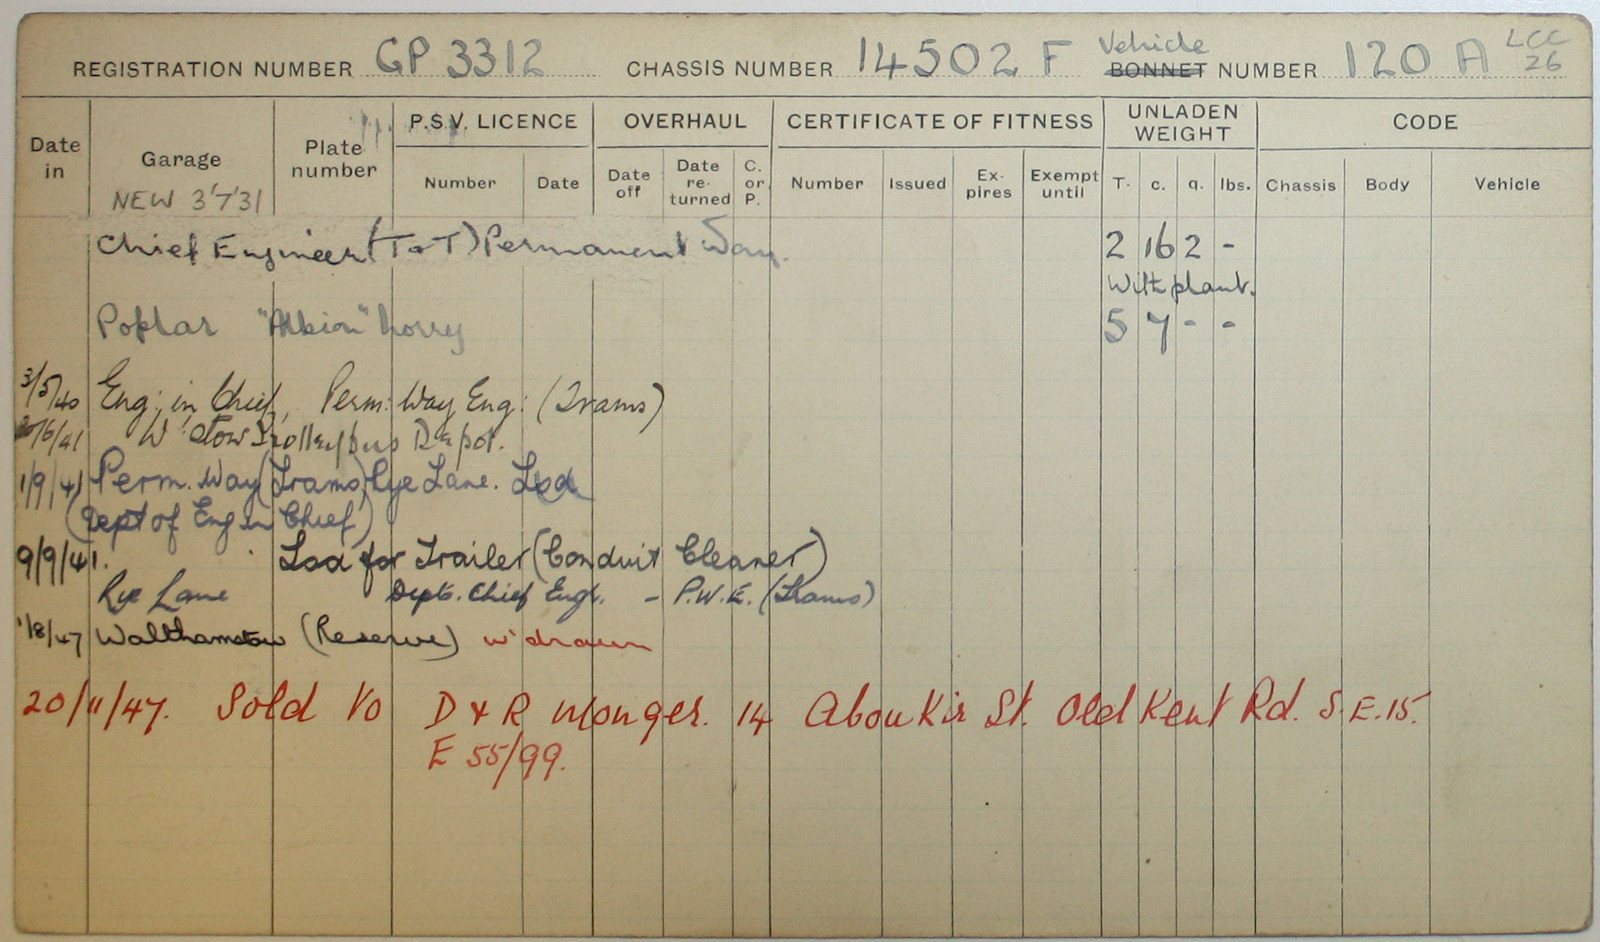 REGISTRATION NUMBER GP 3312 CHASSIS NUMBER 14502 F Vehicle BONNET NUMBER 120 A LCC 26
Date in Garage Plate number P.S.V. LICENCE OVERHAUL CERTIFICATE OF FITNESS UNLADEN WEIGHT CODE
Number Date Date off Date re-turned C. or P. Number Issued Ex-pires Exempt until T. c. q. lbs. Chassis Body Vehicle
NEW 3'7'31
Chief Engineer (T&T) Permanent Way. 2 16 2 -
With plant.
Poplar "Albion" Lorry 5 7 - -
3/5/40 Eng: in Chief, Perm: Way Eng: (Trams)
/6/41 W'stow Trolleybus Depot.
1/9/41 Perm. Way (Trams) Rye Lane.
(Dept of Eng in Chief)
9/9/41. for Trailer (Conduit Cleaner)
Rye Lane Depts. Chief Engr. - P.W.E. (Trams)
1/8/47 Walthamstow (Reserve) w'drawn
20/11/47. Sold to D & R Monger. 14 Aboukir St. Old Kent Rd. S.E.15.
E 55/99.